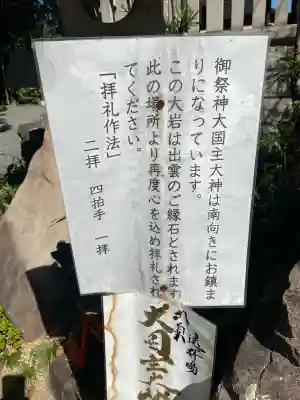 御祭神大国主大神は南向きにお鎮ま
りになっています。
この大岩は出雲のご縁石とされます
此の場所より再度心を込め拝礼され
てください。
「拝礼作法」
二拝 四拍手 一拝
大国主大